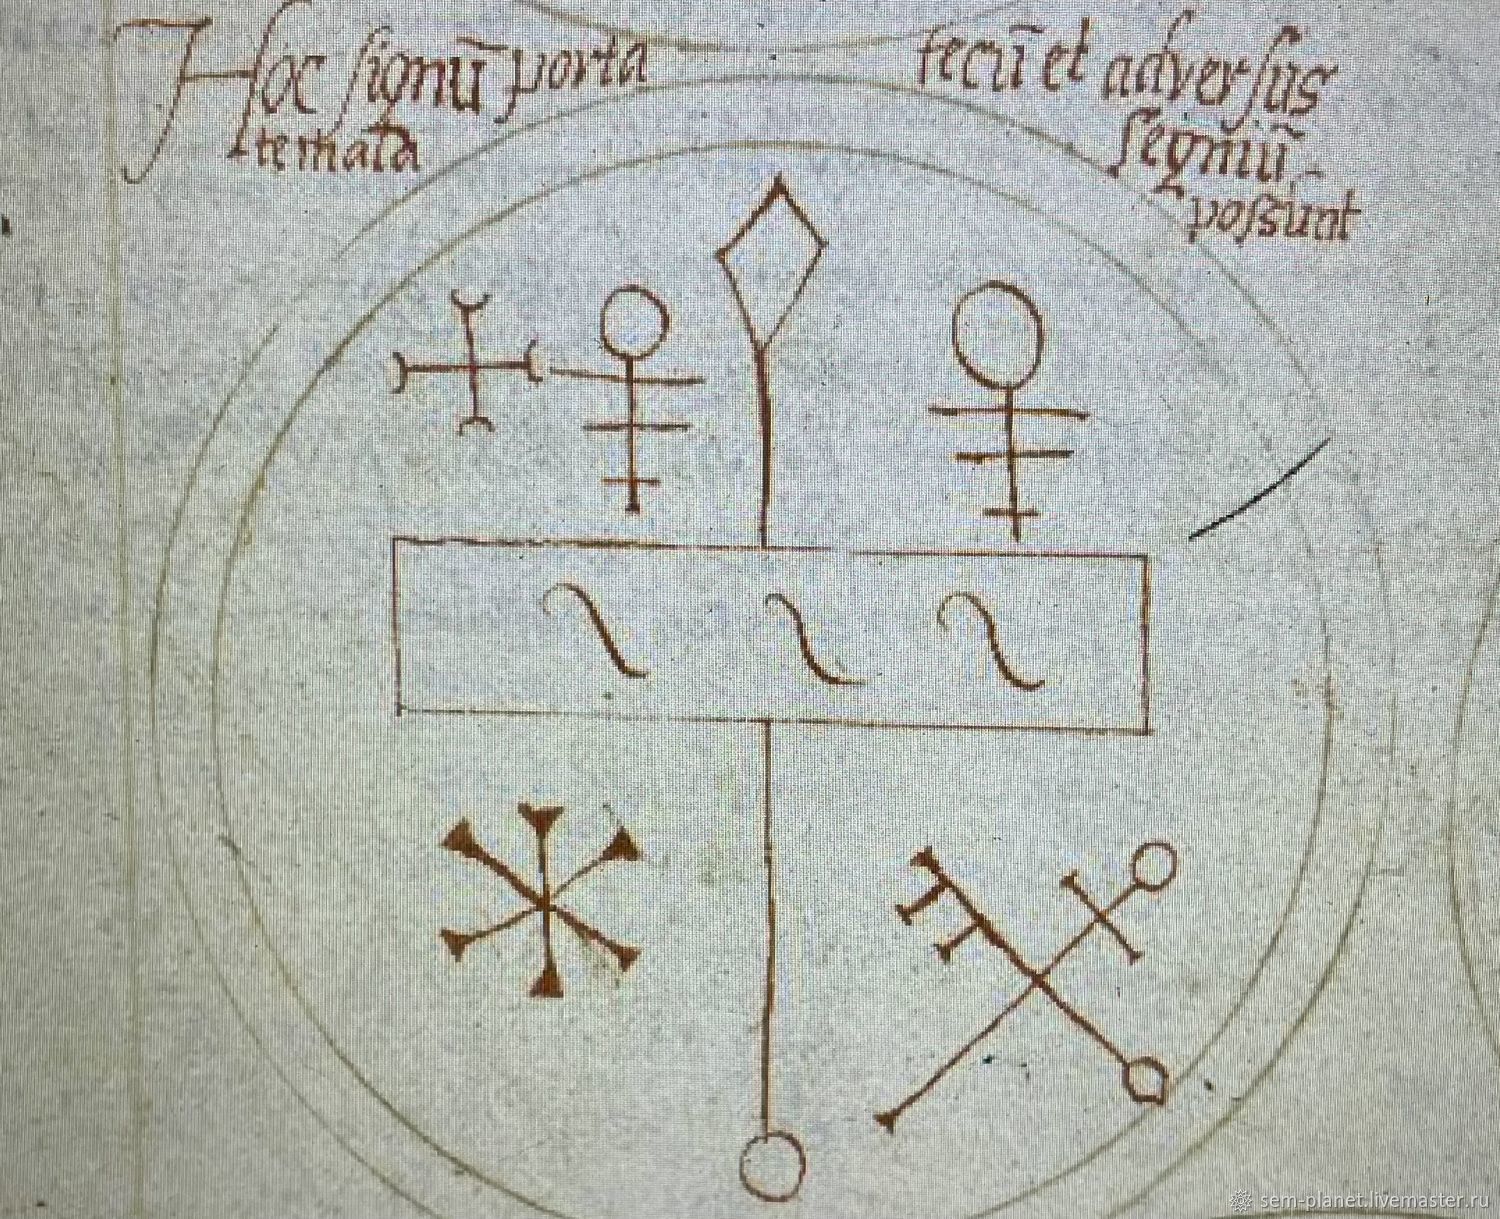 Hoc signū porta
tecū et adversus
te mala
possunt
sem-planet.livemaster.ru